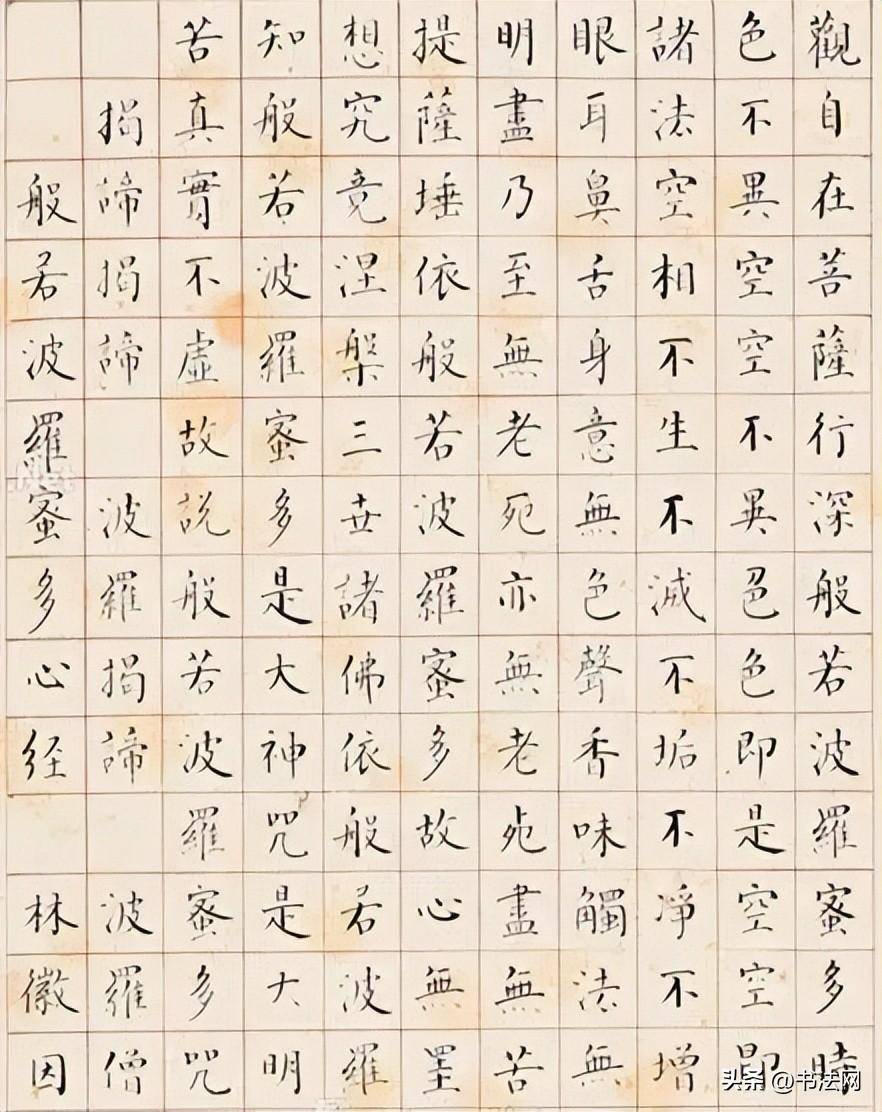 觀自在菩薩行深般若波羅蜜多時
色不異空空不異色色即是空空即
諸法空相不生不滅不垢不凈不增
眼耳鼻舌身意無色聲香味觸法無
明盡乃至無老死亦無老死盡無苦
提薩埵依般若波羅蜜多故心無罣
想究竟涅槃三世諸佛依般若波羅
知般若波羅蜜多是大神咒是大明
苦真實不虛故說般若波羅蜜多咒
揭諦揭諦 波羅揭諦 波羅僧
般若波羅蜜多心経 林徽因
头条 @书法网